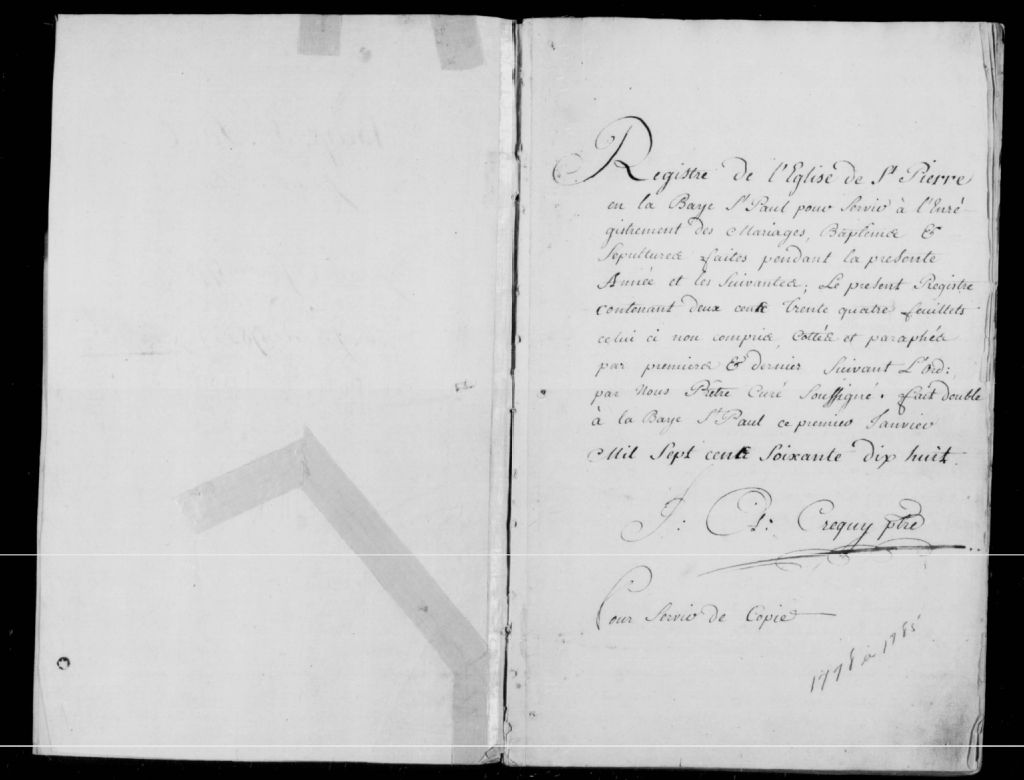 Registre de l'Eglise de St Pierre
en la Baye St Paul pour Servir à l'Enré-
gistrement des Mariages, Baptemes &
Sepultures faites pendant la presente
Année et les Suivantes; Le present Registre
contenant deux cents trente quatre feuillets
celui ci non compris, Cottés et paraphés
par premiers & dernier Suivant L'ord:
par Nous Prêtre Curé Soussigné. fait double
à la Baye St Paul ce premier Janvier
Mil Sept cents Soixante dix huit.
J: Crequy ptre
Pour Servir de Copie
1778 à 1785